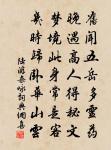 舊聞五岳多靈藥
晚遇高人得秘文
夢境此身常是客
幾時歸臥華山雲
陸游 詞典網